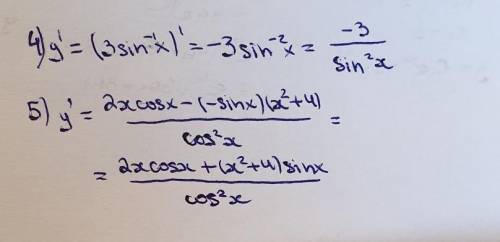 4) y' = (3sin⁻¹x)' = -3sin⁻²x = -3/sin²x
5) y' = (2xcosx-(-sinx)(x²+4))/cos²x =
= (2xcosx+(x²+4)sinx)/cos²x